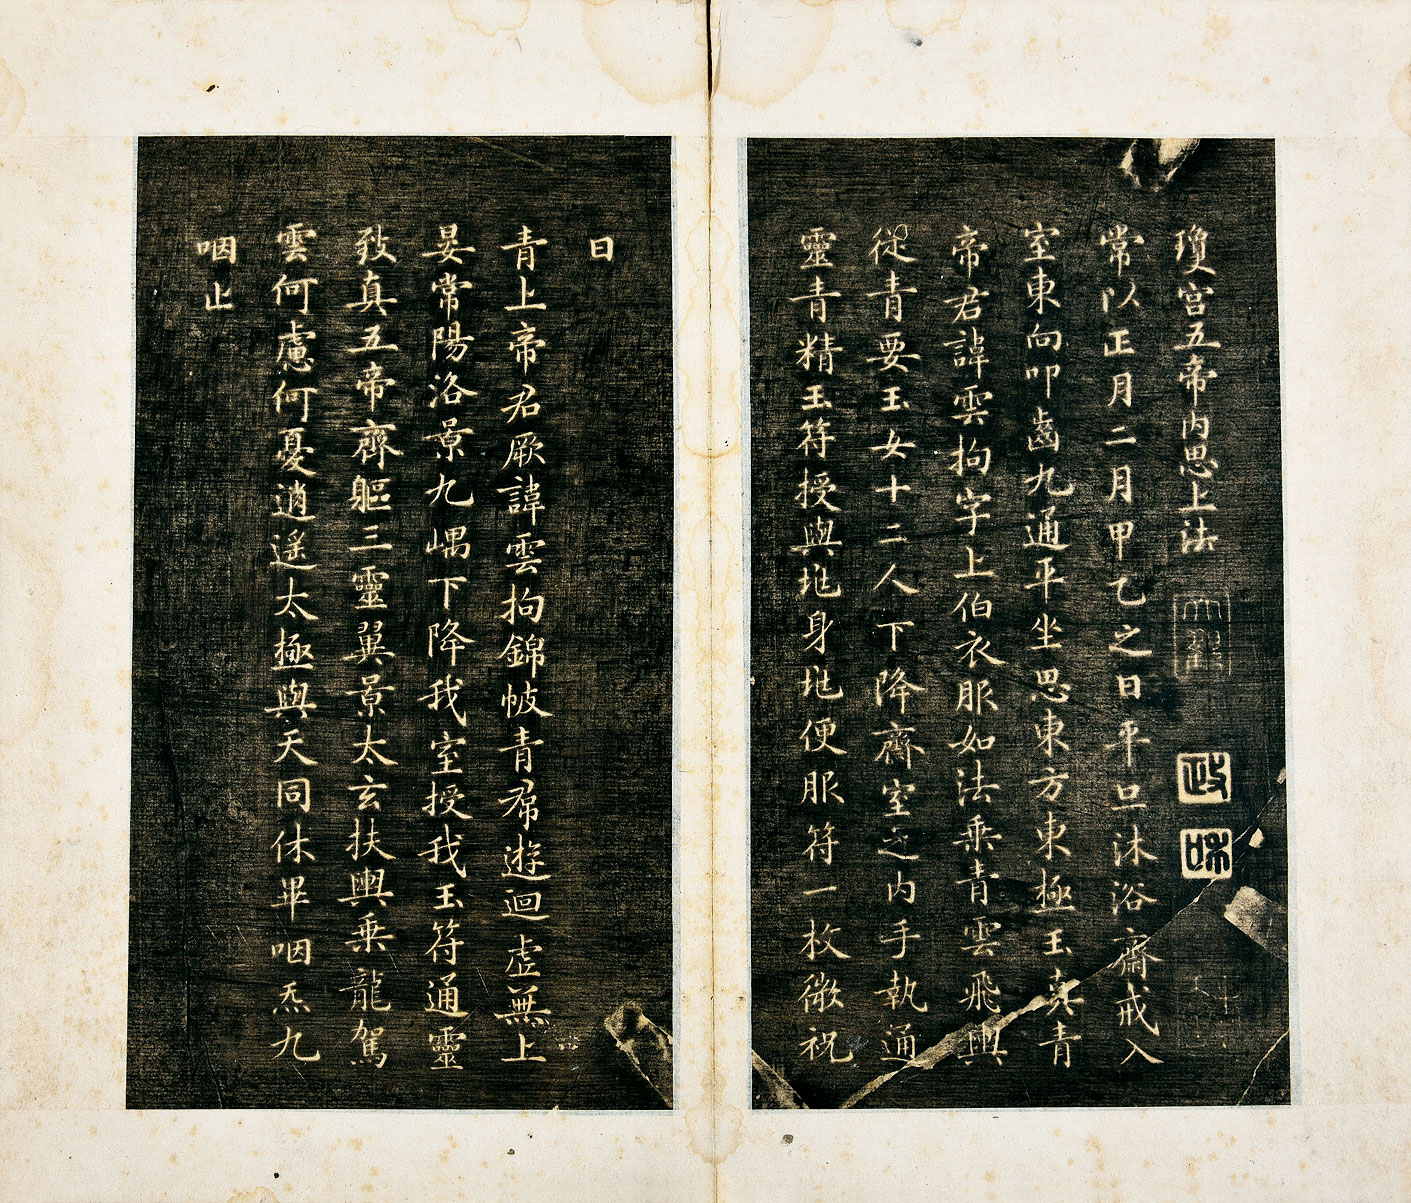 瓊宮五帝內思上法
政
和
常以正月二月甲乙之日平旦沐浴齋戒入
室東向叩齒九通平坐思東方東極玉真青
帝君諱雲拘字上伯衣服如法乘青雲飛輿
從青要玉女十二人下降齋室之內手執通
靈青精玉符授與地身地便服符一枚微祝
曰
青上帝君厥諱雲拘錦帔青帬遊迴虛無上
晏常陽洛景九嵎下降我室授我玉符通靈
致真五帝齊軀三靈翼景太玄扶輿乘龍駕
雲何慮何憂逍遙太極與天同休畢咽炁九
咽止